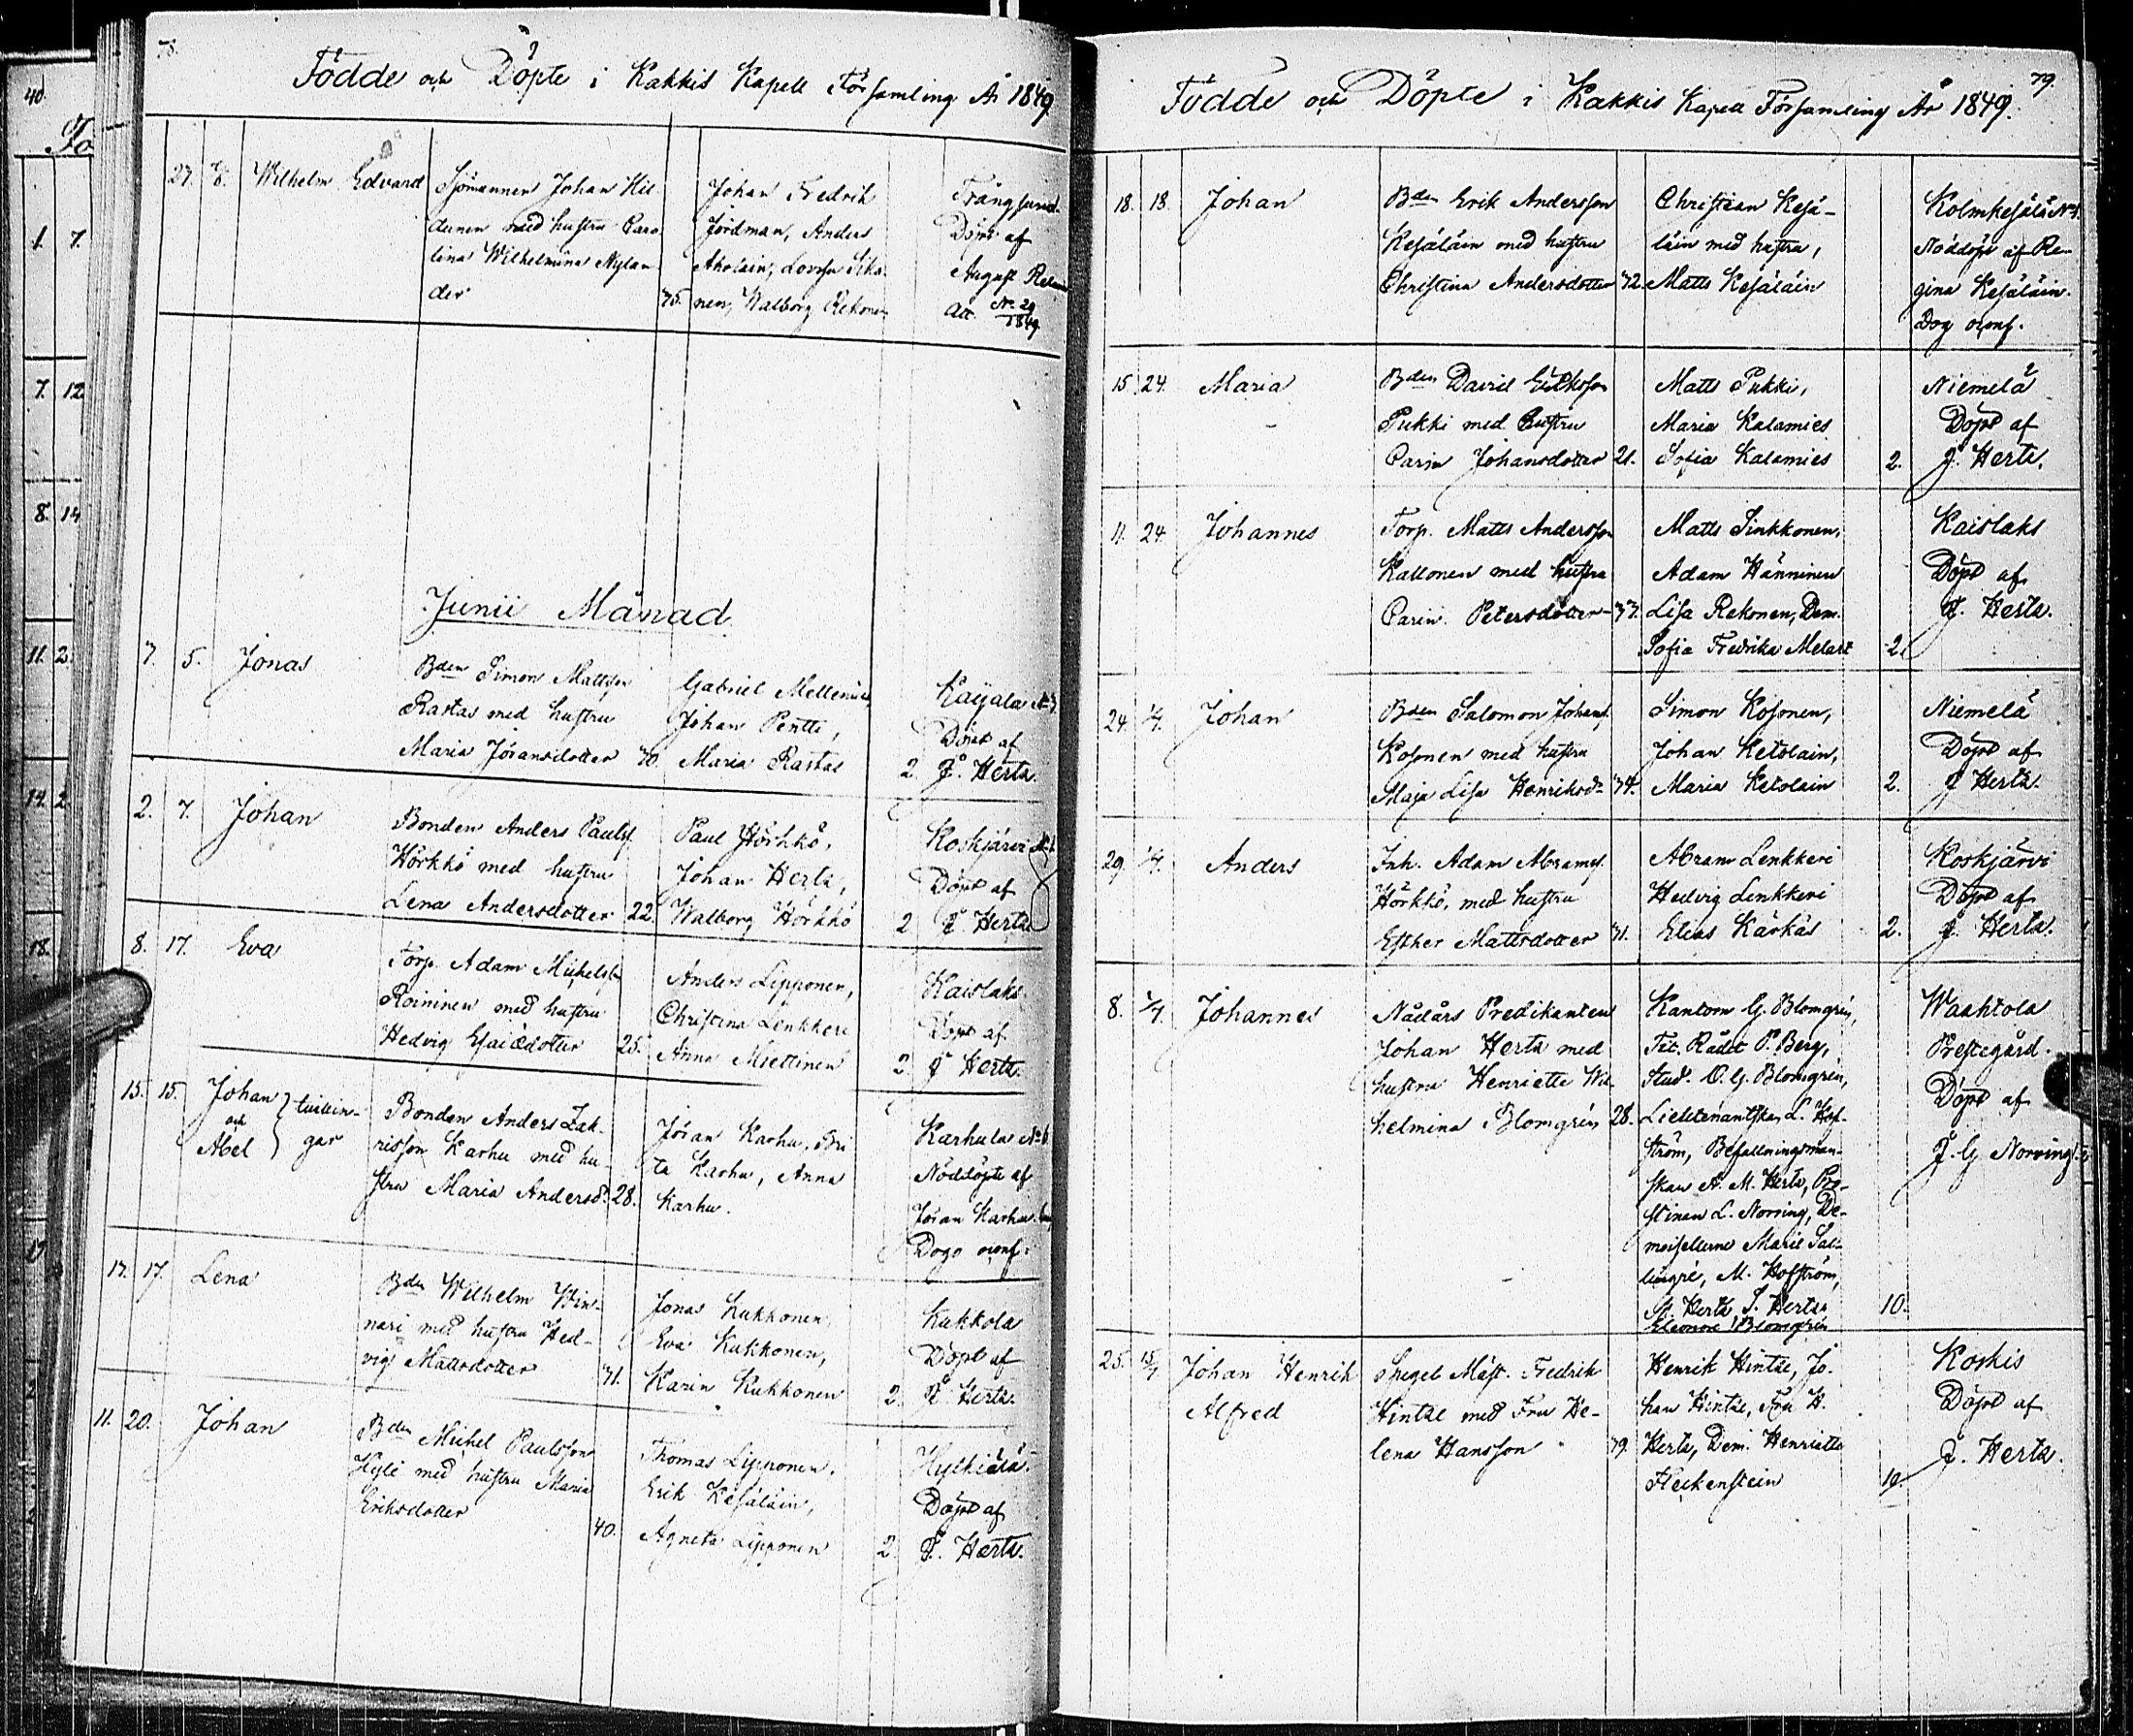 78.
Födde och Döpte i Kakkis Kapell Församling År 1849
27. Wilhelm Edvard
Sjömannen Johan Hil-
dunen med hustru Caro
lina Wilhelmina Nylan-
der
75.
Johan Fredrik
Jordman, Anders
Aholain, Lovisa Sika-
nen, Walborg Rekonen
Trångsund.
Döpt af
August
Att. No 29
1849
Junii Månad
7. 5. Jonas
Bden Simon Mattsson
Rastas med hustru
Maria Jöransdotter 70.
Gabriel
Johan Pentti,
Maria Rastas 2.
Kaijala
Döpt af
J. Hertz.
2. 7. Johan
Bonden Anders Paulss.
Hörkkö med hustru
Lena Andersdotter 22.
Paul Hörkkö,
Johan Hertz,
Walborg Hörkkö 2
Koskjärvi
Döpt af
J. Hertz
8. 17. Eva
Torp. Adam Michelss.
Roininen med hustru
Hedvig Esaiædotter 25.
Anders Lipponen,
Christina Lenkkeri
Anna Miettinen 2.
Kaislaks
Döpt af
J Hertz.
15. 15. Johan
och
Abel
tvillin-
gar
Bonden Anders Zak-
risson Karhu med hu-
stru Maria Andersd. 28.
Jöran Karhu, Bri
ta Karhu, Anna
Karhu.
Karhula No 6
Nöddöpte af
Jöran Karhu.
Dogo oconf.
17. 17. Lena
Bden Wilhelm Win-
nari med hustru Hed-
vig Mattsdotter 71.
Jonas Kukkonen
Eva Kukkonen,
Karin Kukkonen 2.
Kukkola
Döpt af
J. Hertz.
11. 20. Johan
Bden Michel Paulsson
Hyle med hustru Maria
Eriksdotter
40.
Thomas Lipponen,
Erik Kesäläin,
Agneta Lipponen 2.
Hylkiälä.
Döpt af
J. Hertz.
79.
Födde och Döpte i Kakkis Kapell Församling År 1849.
18. 18. Johan
Bden Erik Andersson
Kesäläin med hustru
Christina Andersdotter 72.
Christian Kesä-
läin med hustru,
Matts Kesäläin
Kolmkesälä No 1.
Nöddöpt af Re-
gina Kesäläin.
Dog oconf.
15 24. Maria
Bden David Erikson
Pukki med hustru
Carin Johansdotter 21.
Matts Pukki,
Maria Kalamies
Sofia Kalamies 2.
Niemelä
Döpt af
J. Hertz.
11. 24 Johannes
Torp. Matts Andersson
Kallonen med hustru
Carin Petersdotter 77.
Matts Sinkkonen,
Adam Hänninen
Lisa Rekonen, Dem.
Sofia Fredrika Melart 2.
Kaislaks
Döpt af
J. Hertz.
24. 1/7. Johan
Bden Salomon Johanss.
Kosonen med hustru
Maja Lisa Henriksdr 74.
Simon Kosonen,
Johan Ketolain,
Maria Ketolain 2.
Niemelä
Döpt af
J Hertz.
29. 1/7. Anders
Inh. Adam Abramss.
Hörkkö, med hustru
Esther Mattsdotter 71.
Abram Lenkkeri
Hedvig Lenkkeri
Elias Kärkäs 2.
Koskjärvi
Döpt af
J. Hertz.
8. 1/7. Johannes
Nådårs Predikanten
Johan Hertz med
hustru Henriette Wil-
helmina Blomgrén 28.
Kantorn G. Blomgrén,
Tit. Rådet P. Berg,
Stud. O. G. Blomgrén,
Lieutenantskan L. Hof-
ström, Befallningsman-
skan A. M. Hertz, Pro-
stinnan L. Norring, De-
moisellerne Marie Sal-
lingré, M. Hofström,
M. Hertz, S. Hertz 10.
Eleonore Blomgrén
Waahtola
Prestegård.
Döpt af
J. G Norring.
25. 15/7 Johan Henrik
Alfred
Spegel Mäst. Fredrik
Hintze med Fru He-
lena Hansson 79.
Henrik Hintze, Jo-
han Hintze, Fru H.
Hertz, Dem. Henriette
Fleckenstein 10.
Koskis
Döpt af
J. Hertz.
40.
Fö
1. 7.
7. 12
8. 14
11. 2.
14. 2
18.